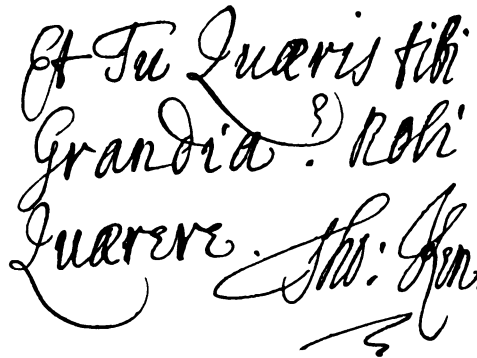 Et Tu Quæris tibi
Grandia? Noli
Quærere.
Tho: Ken.